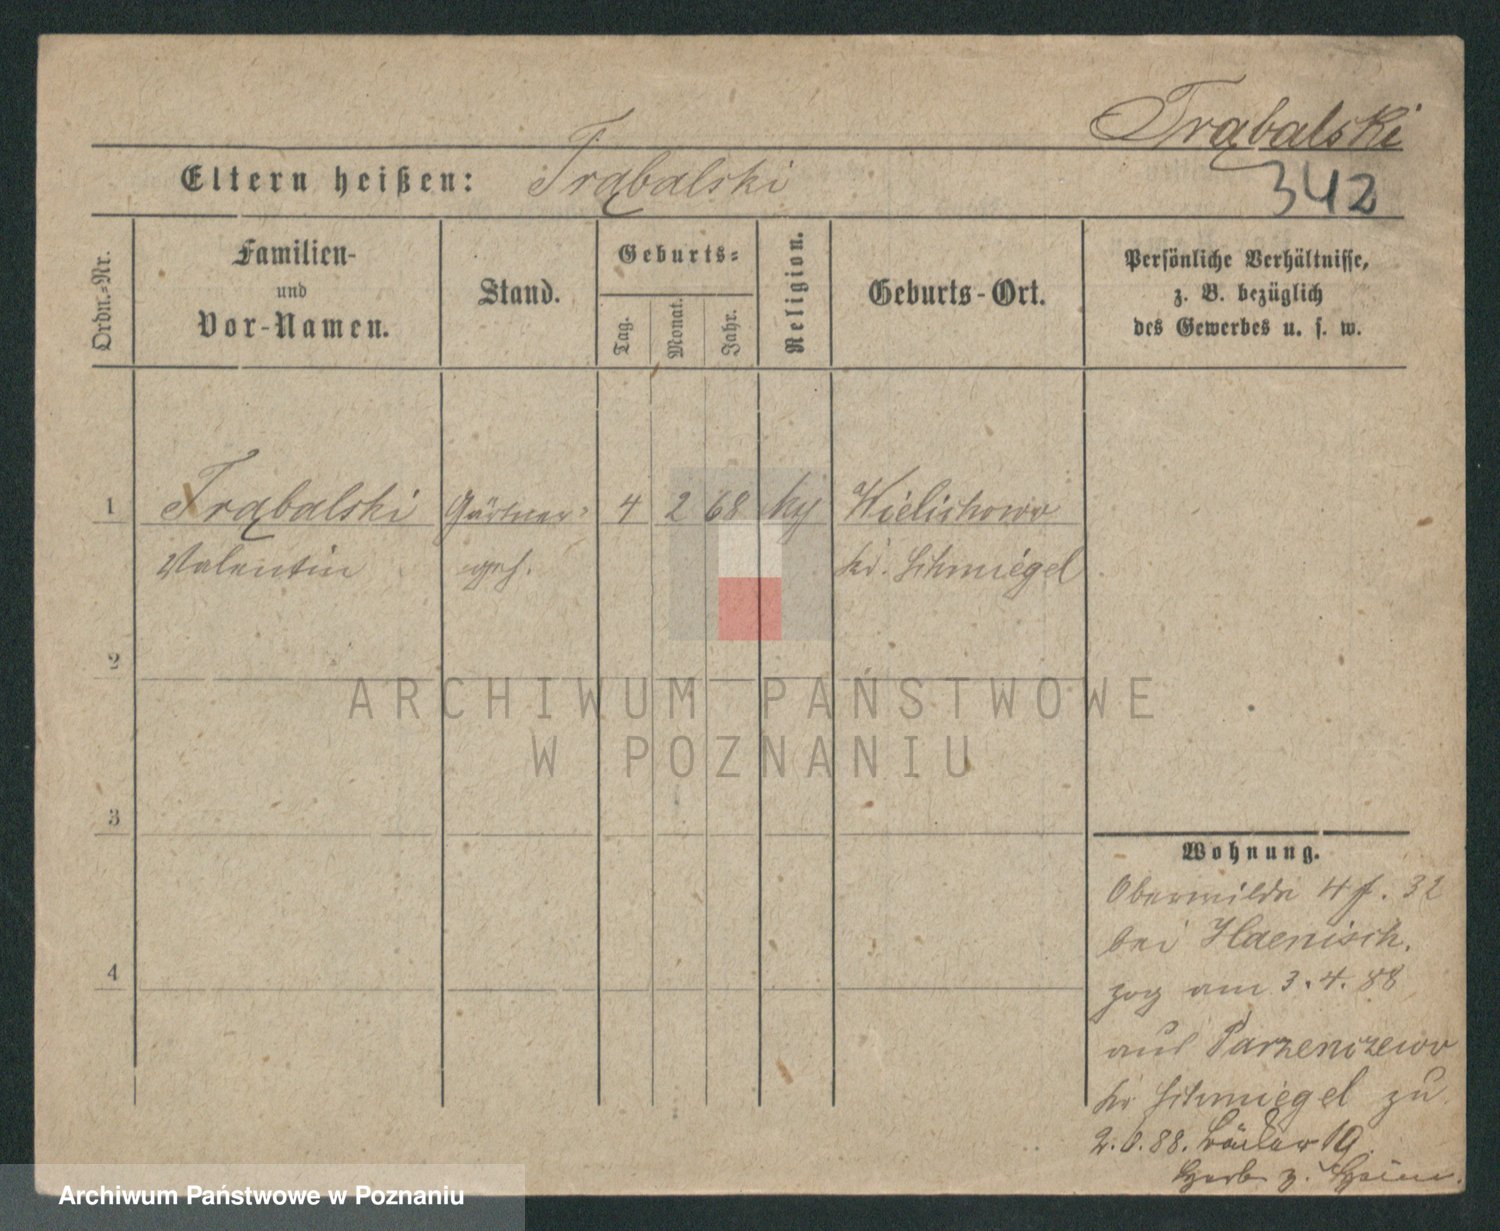 Trąbalski
342
Eltern heißen: Trąbalski
Ordn.-Nr.
Familien-
und
Vor-Namen.
Stand.
Geburts-
Tag.
Monat.
Jahr.
Religion.
Geburts-Ort.
Persönliche Verhältnisse,
z. B. bezüglich
des Gewerbes u. s. w.
1 Trąbalski Gärtner- 4 2 68 Wielichowo
Valentin geh. Kr. Schmiegel
2
3
4
ARCHIWUM PAŃSTWOWE
W POZNANIU
Wohnung.
Oberwilda 32
bei Haenisch.
zog am 3.4.88
aus Parzenczewo
Kr Schmiegel zu
88. 19
Archiwum Państwowe w Poznaniu